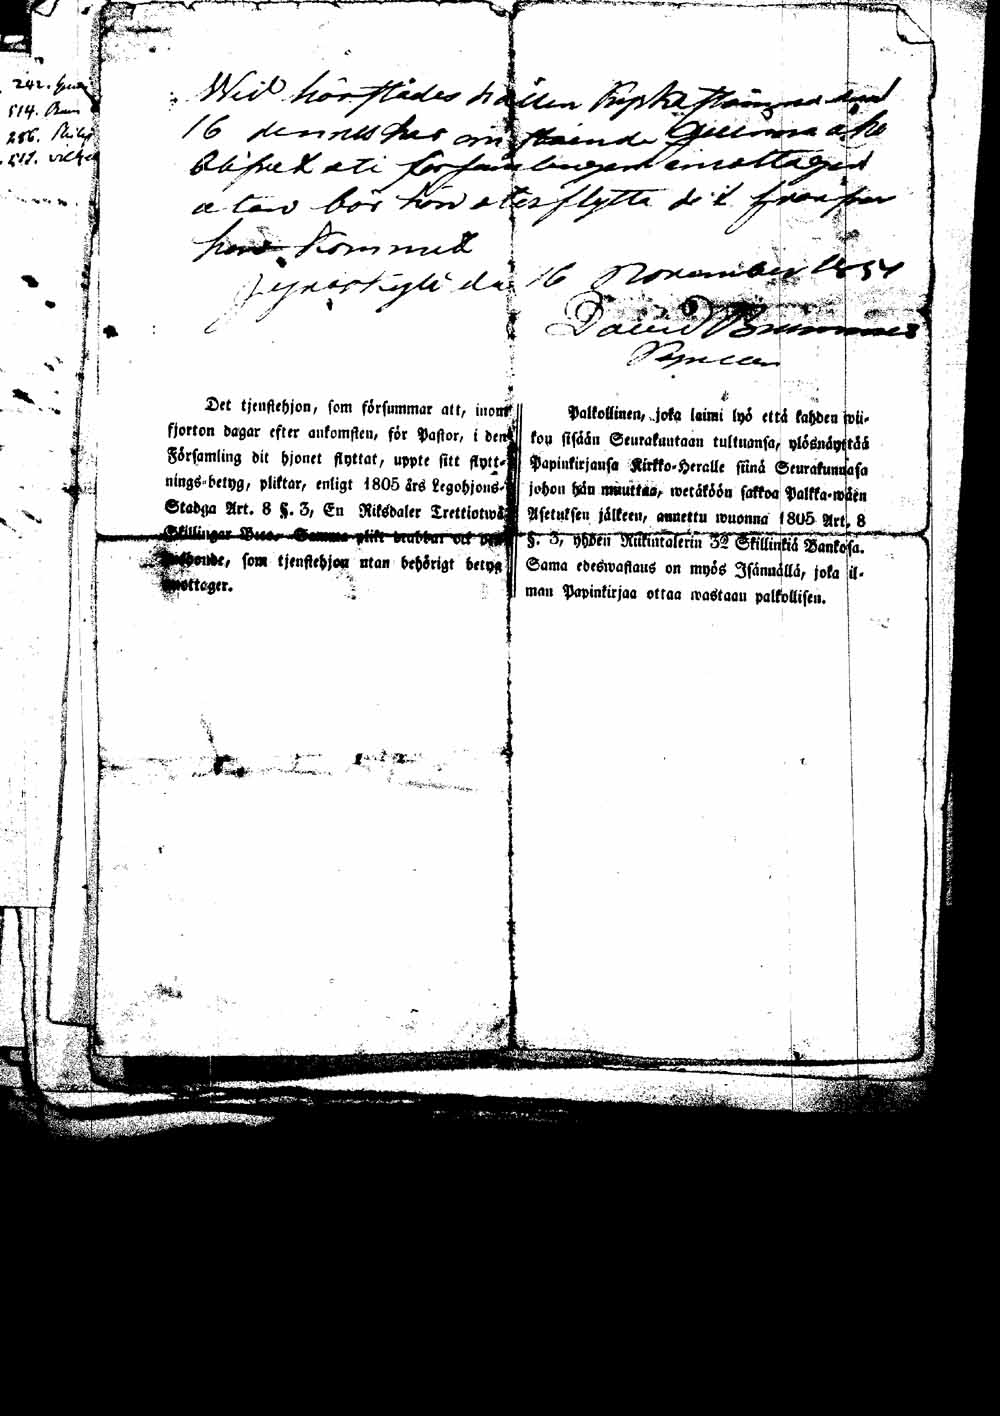 242.
514.
286. Philip
511.
Wid härstädes hållen Kyrkostämma den
16 dennes har omstående Qvinna icke
blifvit i församlingen emottagen
utan bör hon återflytta dit hvarifrån
hon kommit
Jyväskylä den 16 November 1851
David
Det tjenstehjon, som försummar att, inom
fjorton dagar efter ankomsten, för Pastor, i den
Församling dit hjonet flyttat, uppte sitt flytt-
nings-betyg, pliktar, enligt 1805 års Legohjons-
Stadga Art. 8 §. 3, En Riksdaler Trettiotwå
Skillingar B:co. Samma plikt drabbar ock
husbonde, som tjenstehjon utan behörigt betyg
emottager.
Palkollinen, joka laimi lyö että kahden wii-
kon sisään Seurakuntaan tultuansa, ylösnäyttää
Papinkirjansa Kirkko-Heralle siinä Seurakunnasa
johon hän muuttaa, wetäköön sakkoa Palkka-wäen
Asetuksen jälkeen, annettu wuonna 1805 Art. 8
§. 3, yhden Riikintalerin 32 Skillinkiä Bankosa.
Sama edeswastaus on myös Isännällä, joka il-
man Papinkirjaa ottaa wastaan palkollisen.